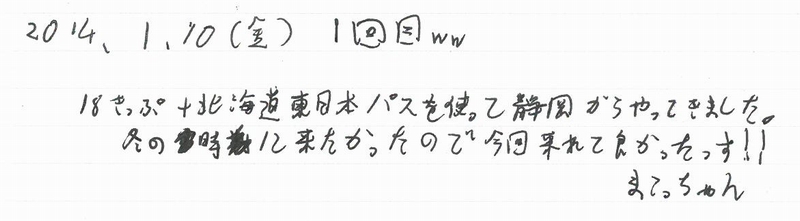 2014、1、10(金) 1回目ww
18きっぷ+北海道東日本パスを使って静岡からやってきました。
冬の時に来たかったので今回来れて良かったっす!!
まこっちゃん